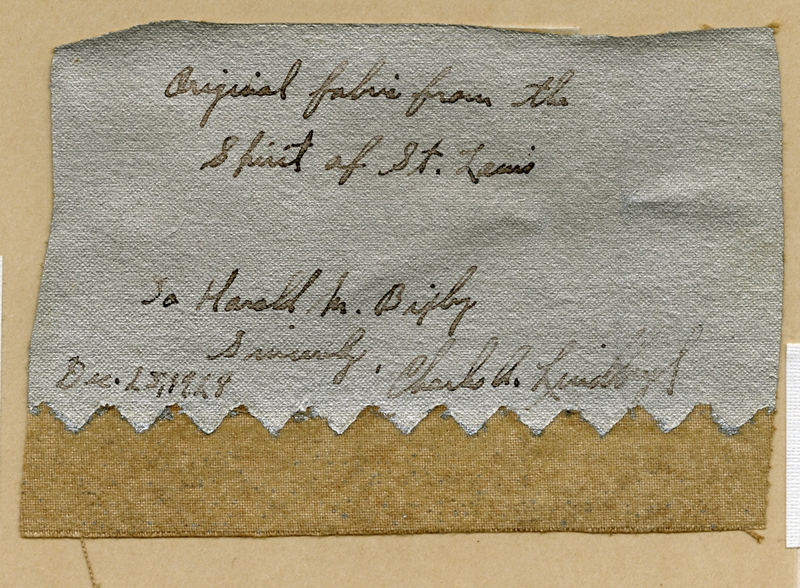 Original fabric from the
Spirit of St. Louis
To Harold M. Bixby
Sincerely,
Dec. 25, 1928 Charles A. Lindbergh